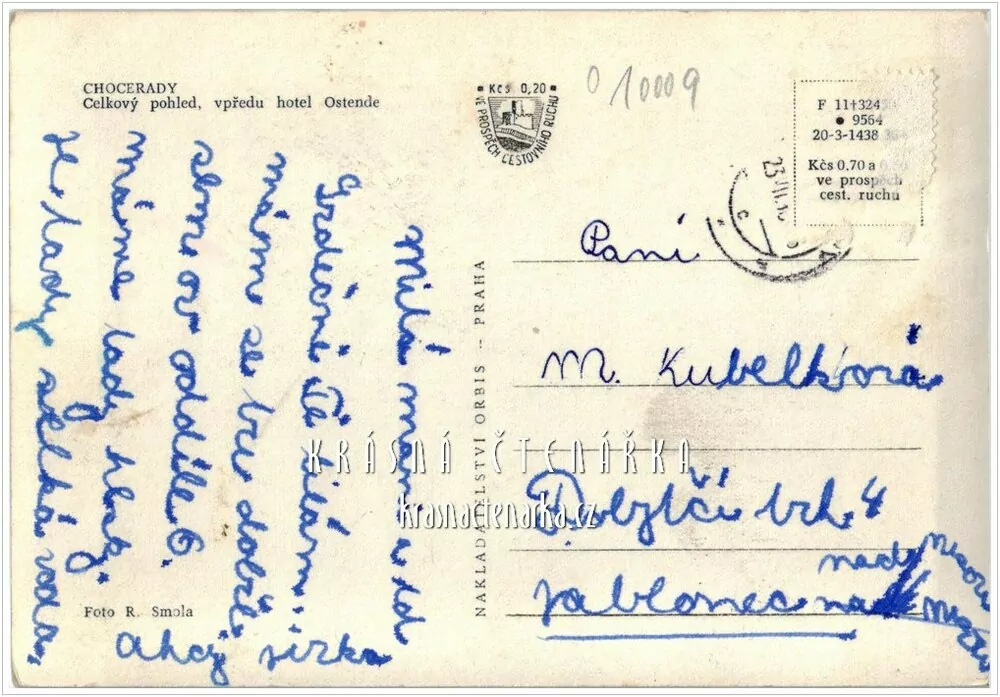 CHOCERADY
Celkový pohled, vpředu hotel Ostende
Kčs 0,20
VE PROSPĚCH CESTOVNÍHO RUCHU
010009
F 11+3245
9564
20-3-1438
Kčs 0.70 a
ve prospěch
cest. ruchu
23
Milá mami a
Srdečně Tě
mám se dobře
sme v oddíle 6.
máme tady hlad.
je tady velká voda,
Ahoj jirka
Foto R. Smola
NAKLADATELSTVÍ ORBIS – PRAHA
Paní
M. Kubelková
Dobytčí trh 4
Jablonec
nad
KRÁSNÁ ČTENÁŘKA
krasnactenarka.cz